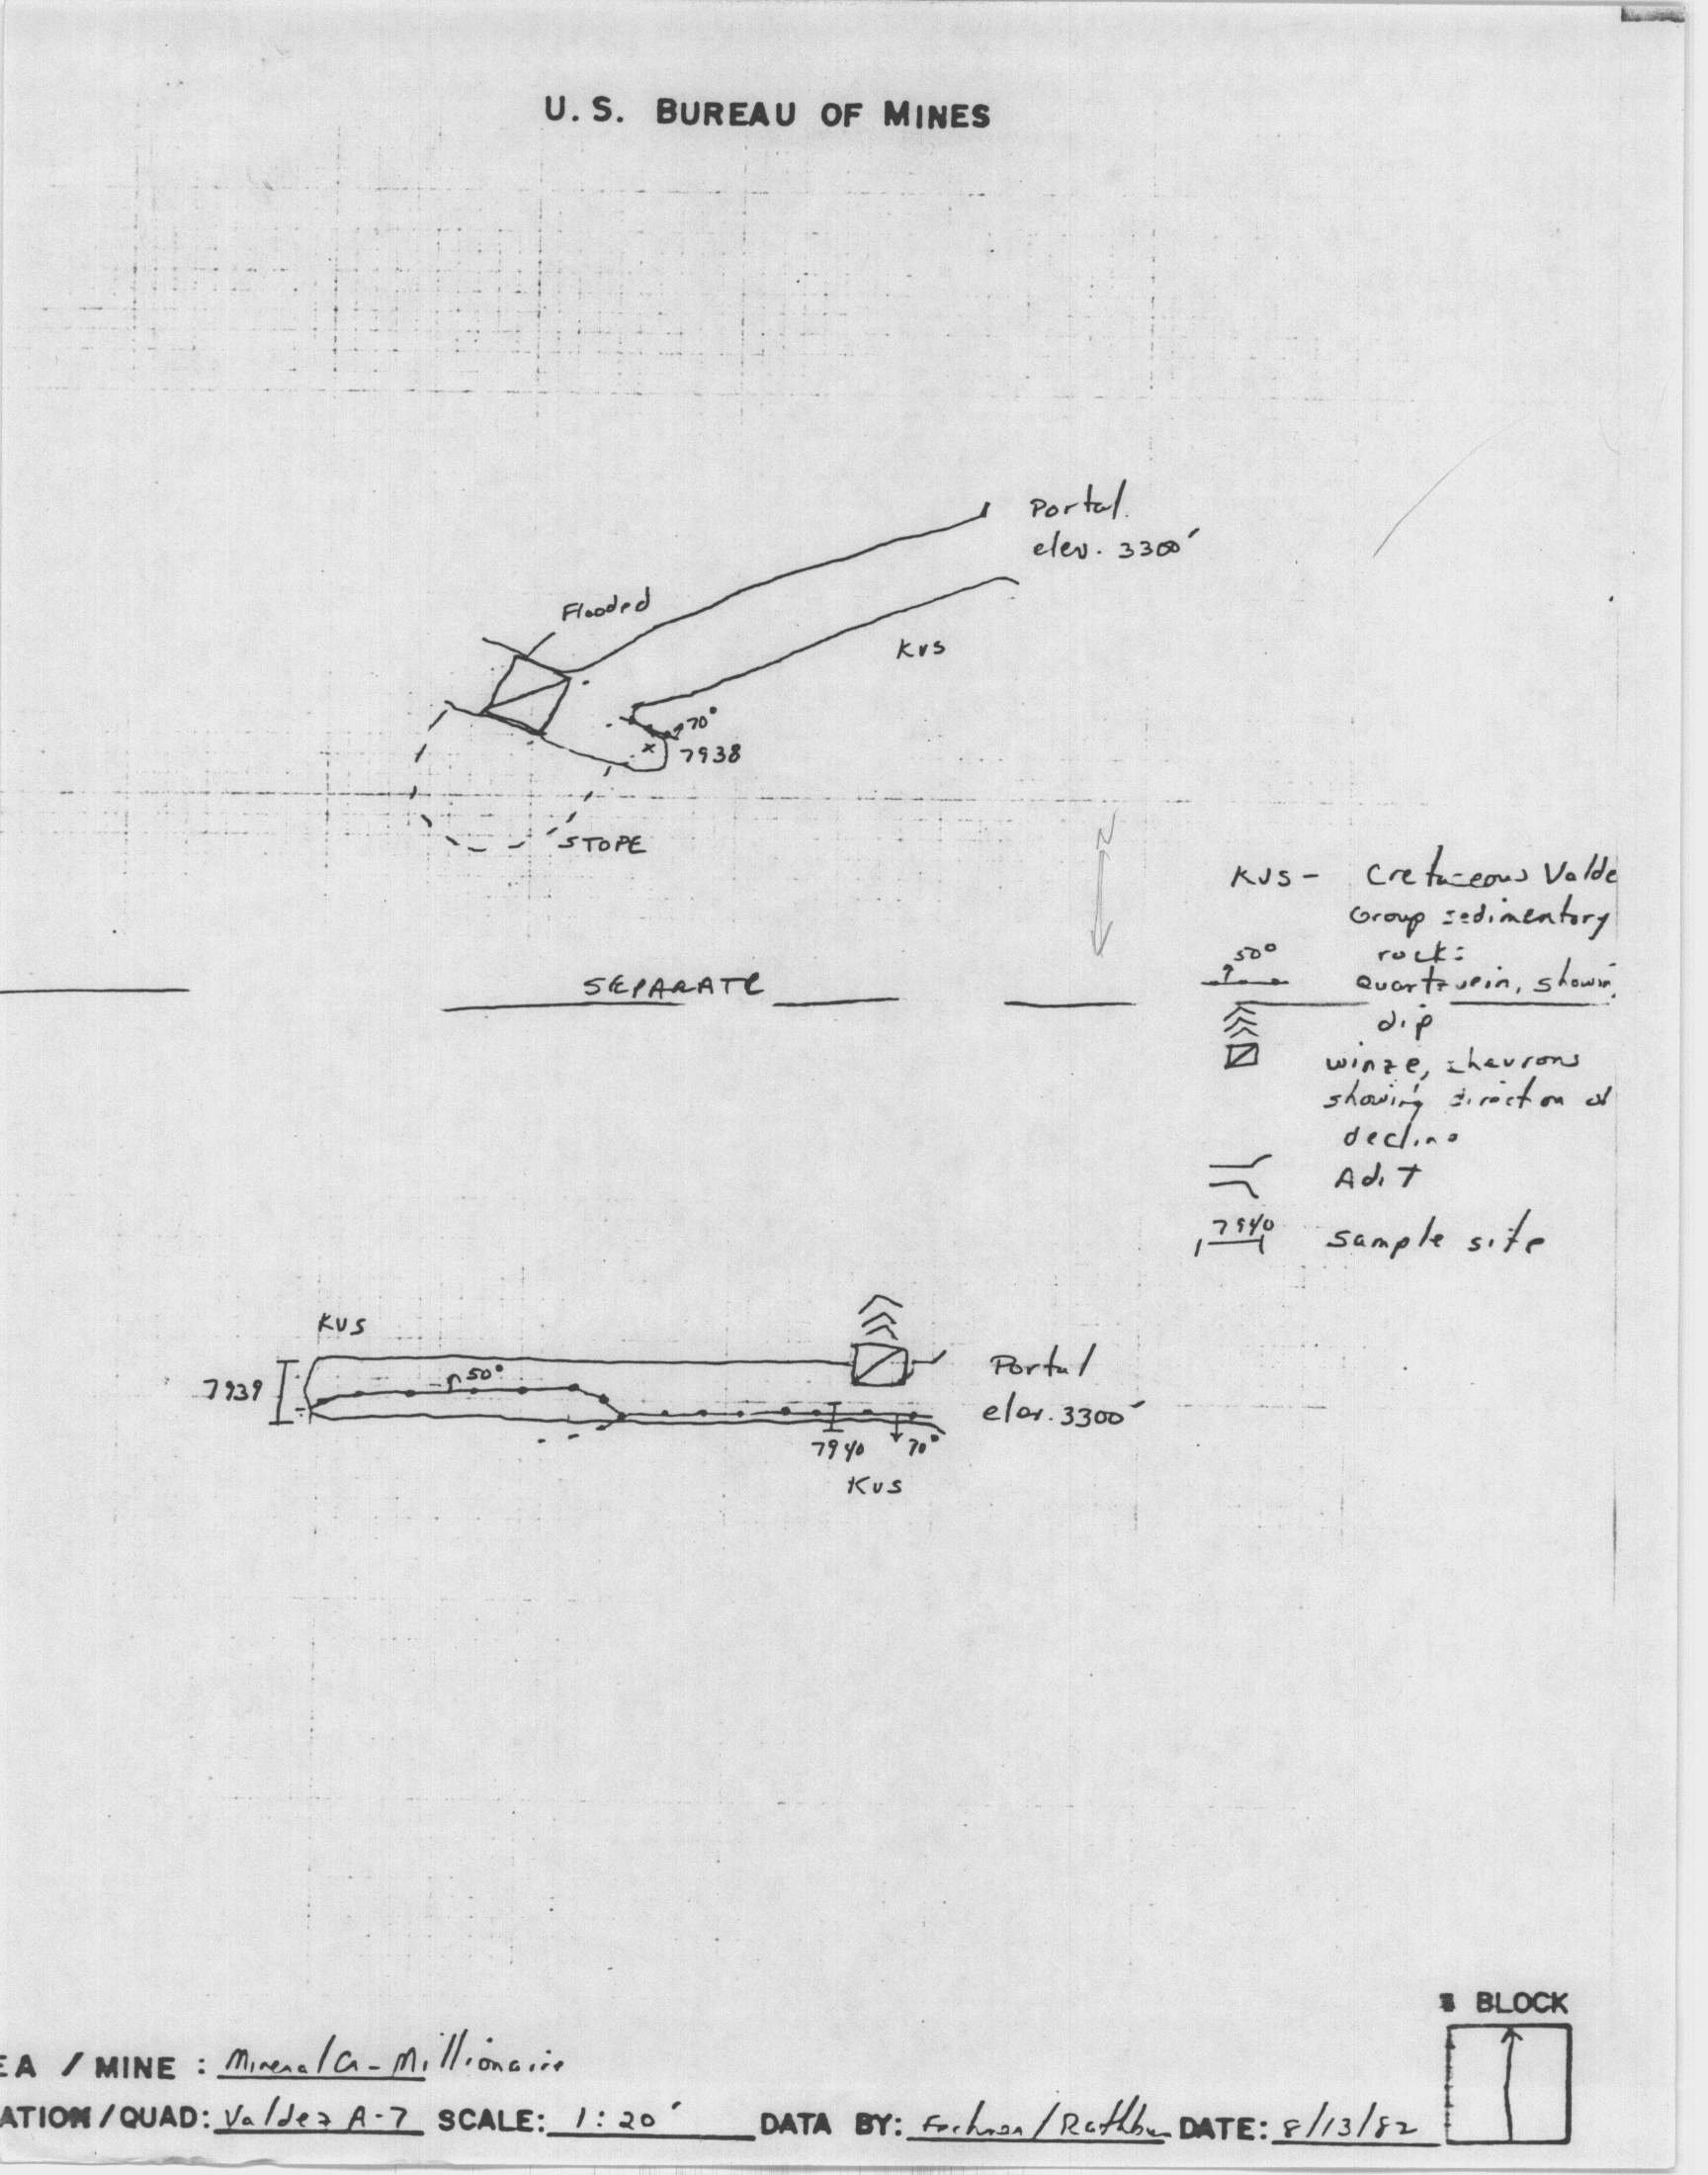 U.S. BUREAU OF MINES
Portal.
elev. 3300'
Flooded
Kvs
70°
7938
STOPE
N
KVS - Cretaceous Valde
Group sedimentary
rocks
50°
Quartz vein, showin
dip
SEPARATE
winze, chevrons
showing direction of
decline
Adit
7940
sample site
KVS
7939
50°
Portal
elev. 3300'
7940
70°
KVS
BLOCK
EA / MINE : Mineral Cr - Millionaire
ATION/QUAD: Valdez A-7 SCALE: 1:20' DATA BY: DATE: 8/13/82